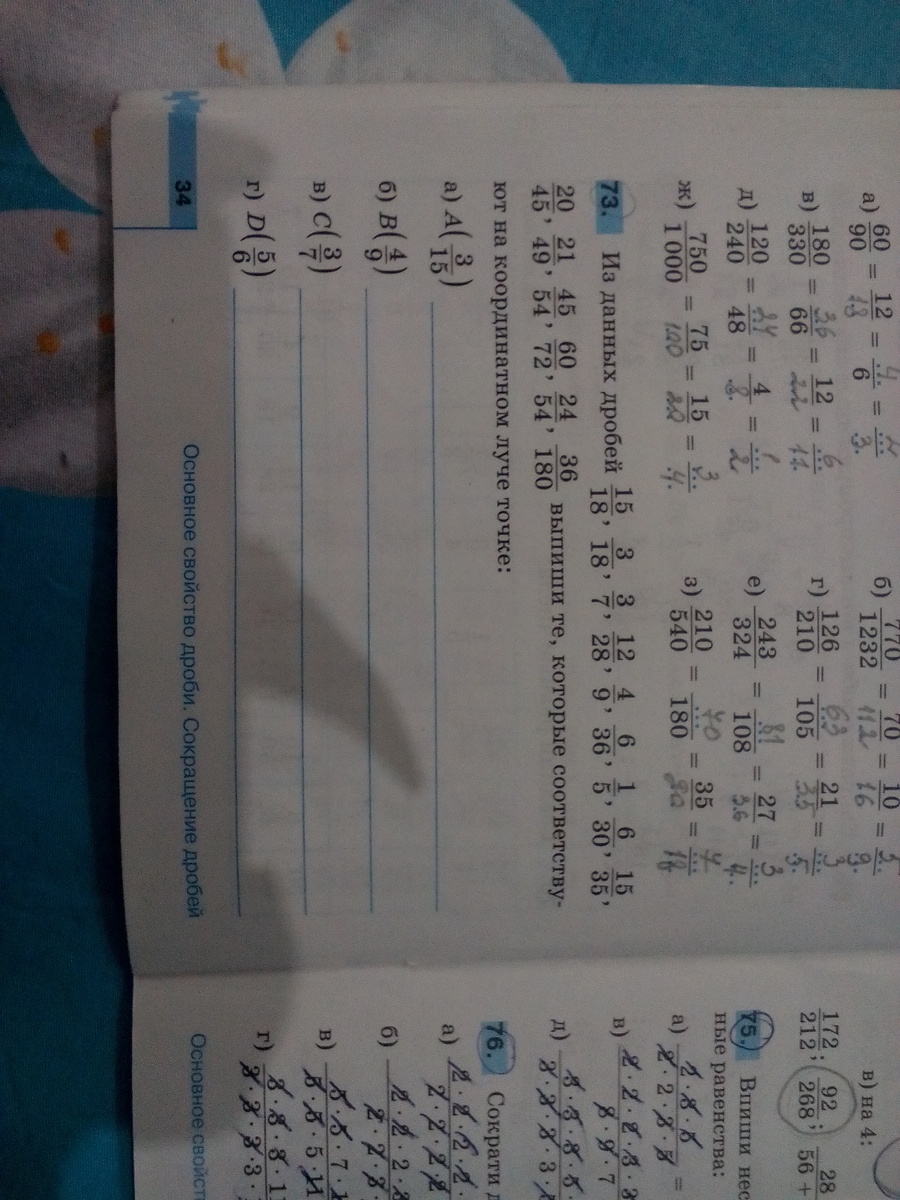 а) 60/90 = 12/18 = 4/6 = 2/3
б) 770/1232 = 70/112 = 10/16 =
в) 180/330 = 36/66 = 12/22 = 6/11
г) 126/210 = 63/105 = 21/35 = 3/5
д) 120/240 = 24/48 = 4/8 = 1/2
е) 243/324 = 81/108 = 27/36 = 3/4
ж) 750/1000 = 75/100 = 15/20 = 3/4
з) 210/540 = 70/180 = 35/90 = 7/18
73. Из данных дробей 15/18, 3/18, 3/7, 12/28, 4/9, 6/36, 1/5, 6/30, 15/35,
20/45, 21/49, 45/54, 60/72, 24/54, 36/180 выпиши те, которые соответству-
ют на координатном луче точке:
а) A(3/15)
б) B(4/9)
в) C(3/7)
г) D(5/6)
34
Основное свойство дроби. Сокращение дробей
в) на 4:
172/212; 92/268; 28
56 +
75. Впиши нес
ные равенства:
а)
в)
д)
76. Сократи д
а)
б)
в)
г)
Основное свойст